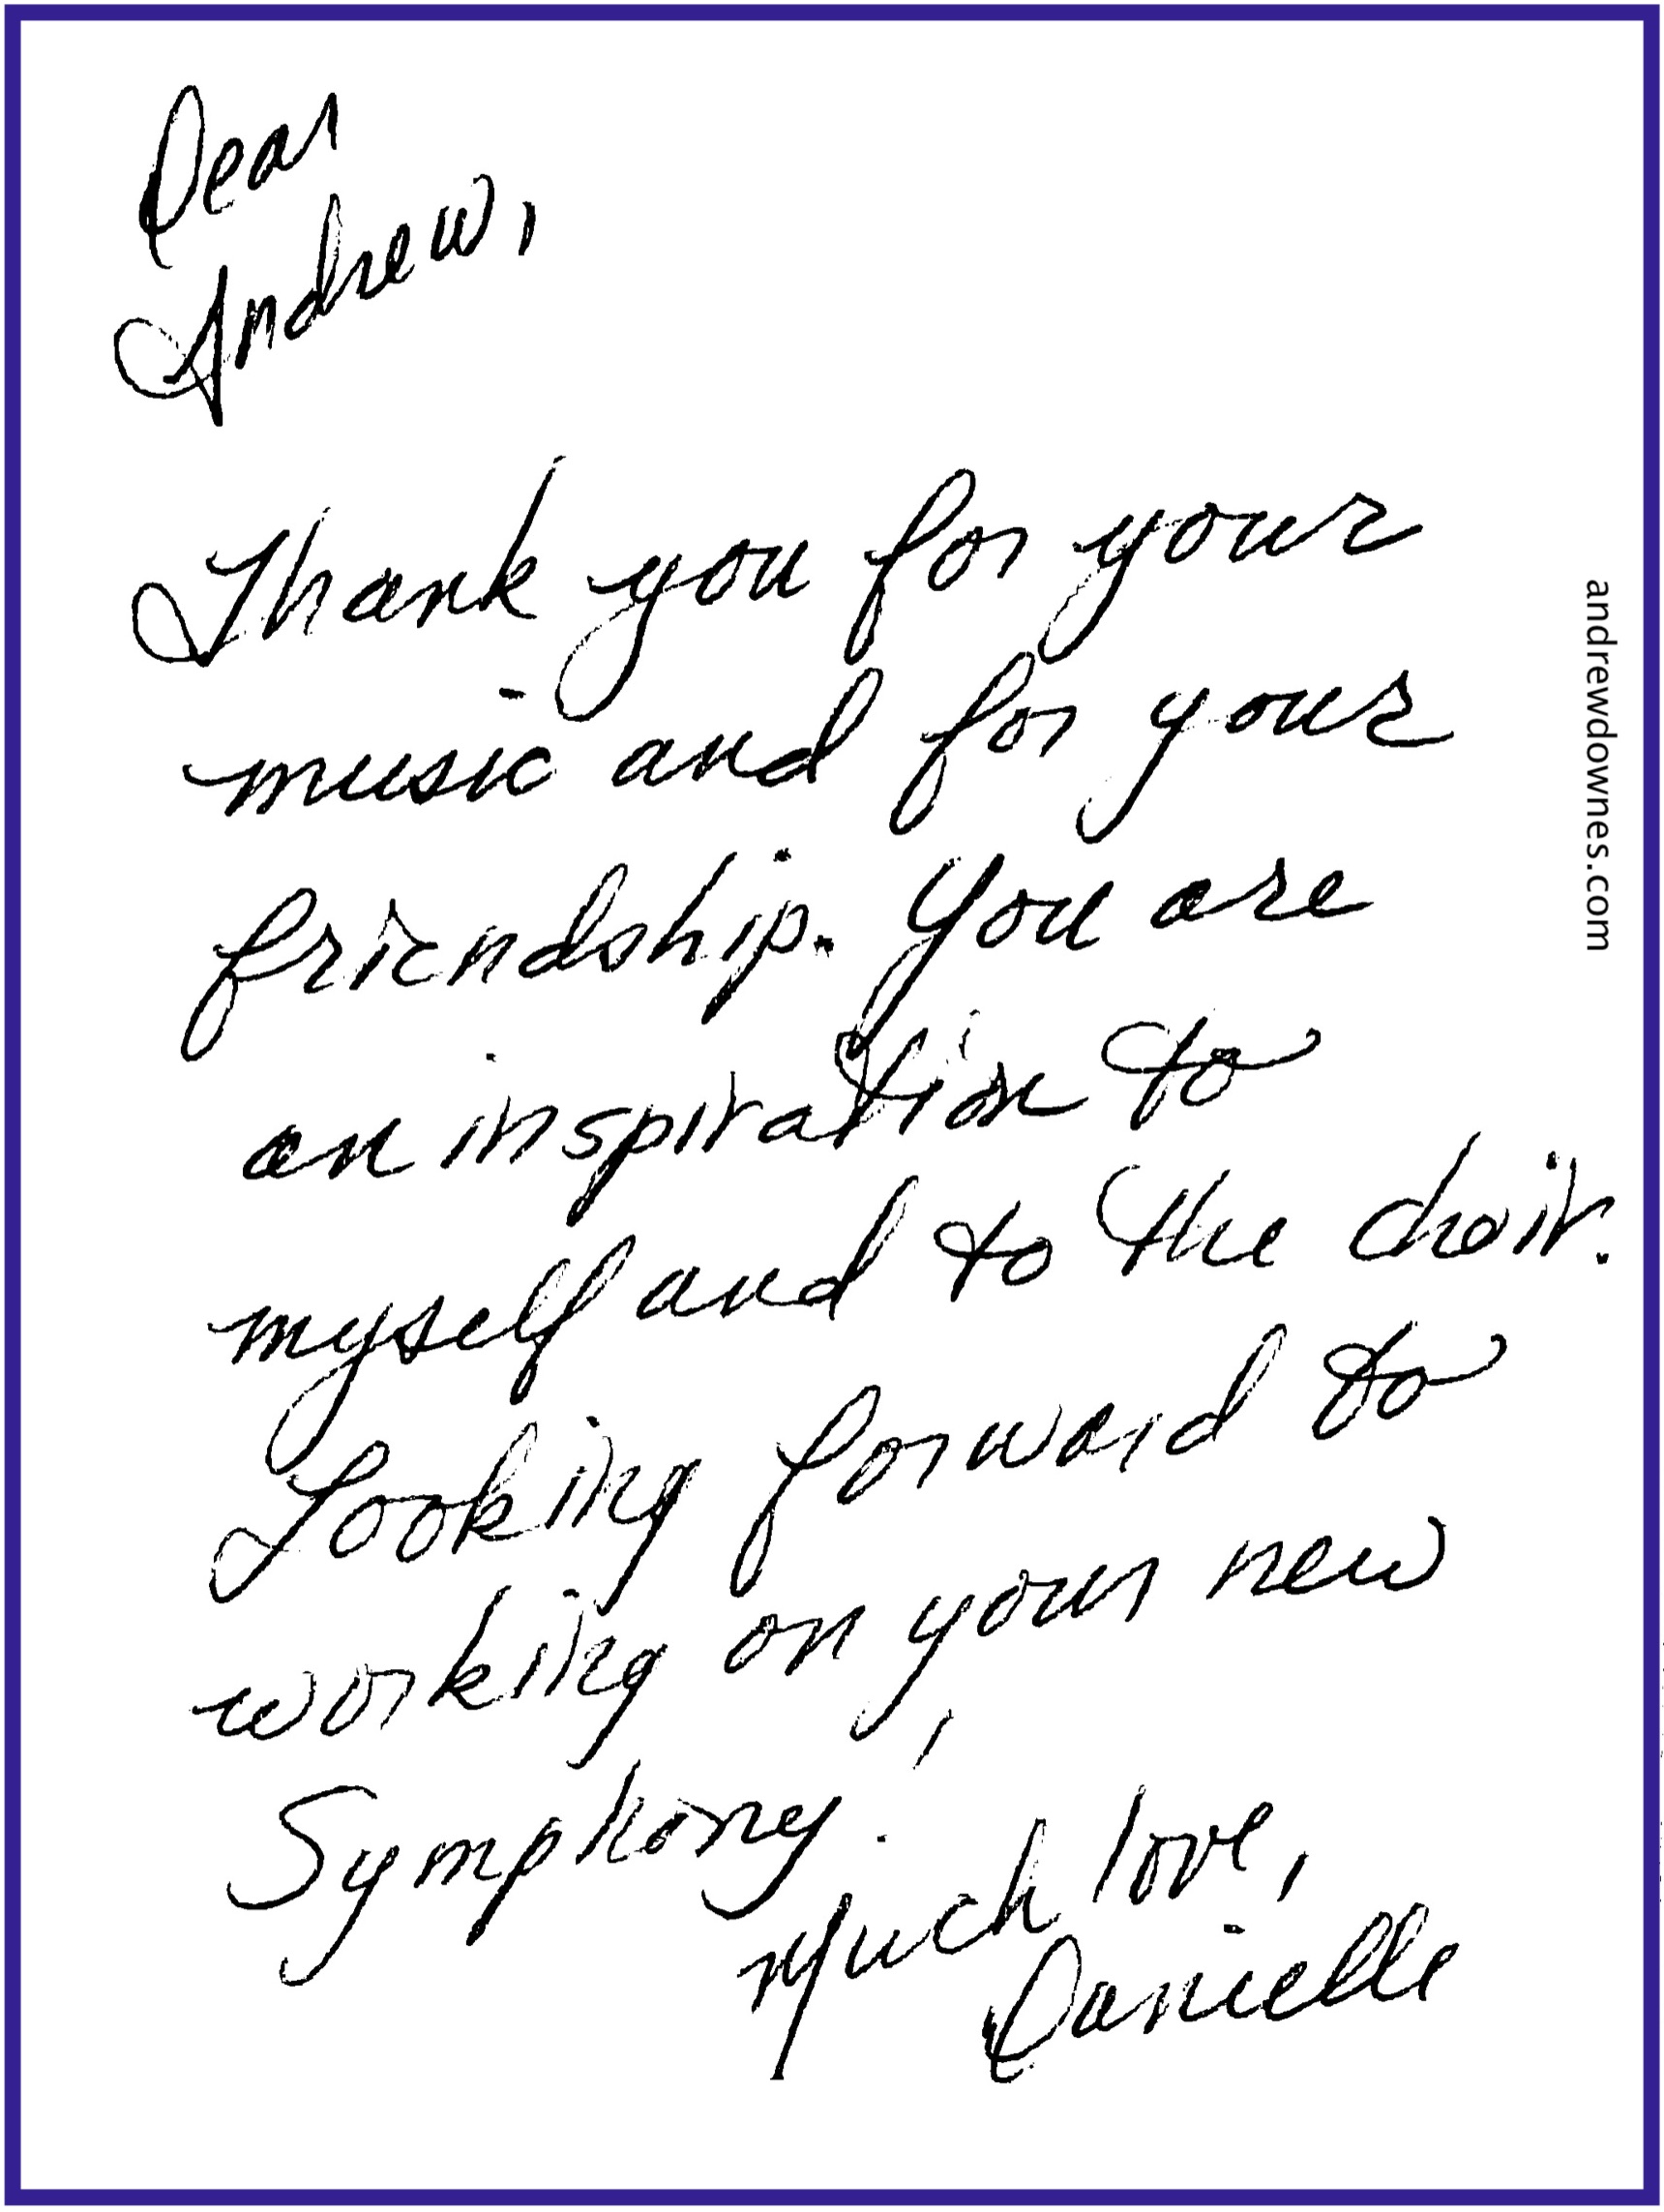 Dear
Andrew,
Thank you for your
music and for your
friendship. You are
an inspiration to
myself and to the choir.
Looking forward to
working on your new
Symphony.
Much love,
Danielle
andrewdownes.com